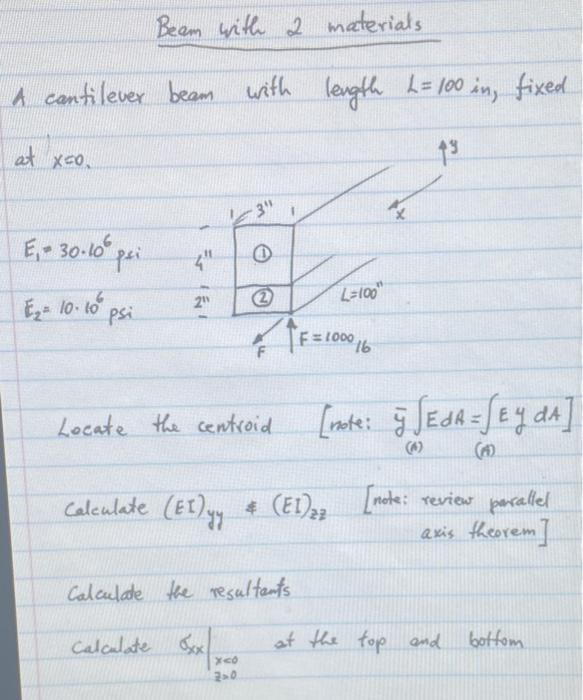 Beam with 2 materials
A cantilever beam with length L = 100 in, fixed
at x=0.
y
x
3"
E₁ = 30·10⁶ psi
4"
①
E₂ = 10·10⁶ psi
2"
②
L=100"
F
F = 1000 lb
Locate the centroid [note: ȳ∫EdA = ∫E y dA]
(A) (A)
Calculate (EI)yy & (EI)zz [note: review parallel
axis theorem]
Calculate the resultants
Calculate σxx| at the top and bottom
x=0
z=0